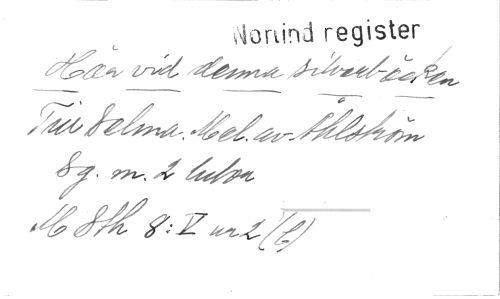 Norlind register
Här vid denna silverbäcken
Till Selma. Mel. av Åhlström
Sg. m. 2 lutor
M Sth 8:V nr 2 (b)